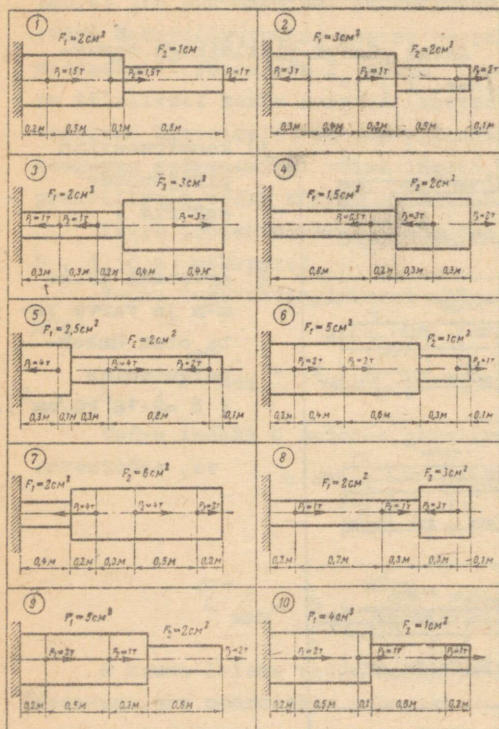 1
F₁=2см²
F₂=1см
P₁=1,5т
P₂=1,5т
P₃=1т
0,2м 0,3м 0,1м
2
F₁=3см²
F₂=2см²
P₁=3т
P₂=2т
0,3м 0,4м 0,2м 0,1м
3
F₁=2см²
F₂=3см²
P₁=1т
P₂=1т
P₃=3т
0,3м 0,3м 0,2м 0,4м 0,4м
4
F₁=1,5см²
F₂=2см²
P₂=3т
0,2м 0,3м 0,3м
5
F₁=2,5см²
F₂=2см²
P₁=4т
P₂=4т
P₃=2т
0,3м 0,1м 0,3м 0,8м 0,1м
6
F₁=5см²
F₂=1см²
P₁=2т
P₂=2т
P₃=1т
0,2м 0,4м 0,6м 0,3м 0,1м
7
F₁=2см²
F₂=6см²
P₁=4т
P₂=4т
P₃=2т
0,4м 0,2м 0,3м 0,5м 0,2м
8
F₁=2см²
F₂=3см²
P₁=1т
P₂=1т
P₃=3т
0,2м 0,7м 0,3м 0,3м 0,1м
9
F₁=5см²
F₂=2см²
P₁=2т
P₂=1т
P₃=2т
0,2м 0,5м 0,3м 0,6м
10
F₁=4см²
F₂=1см²
P₁=2т
P₂=1т
P₃=1т
0,2м 0,5м